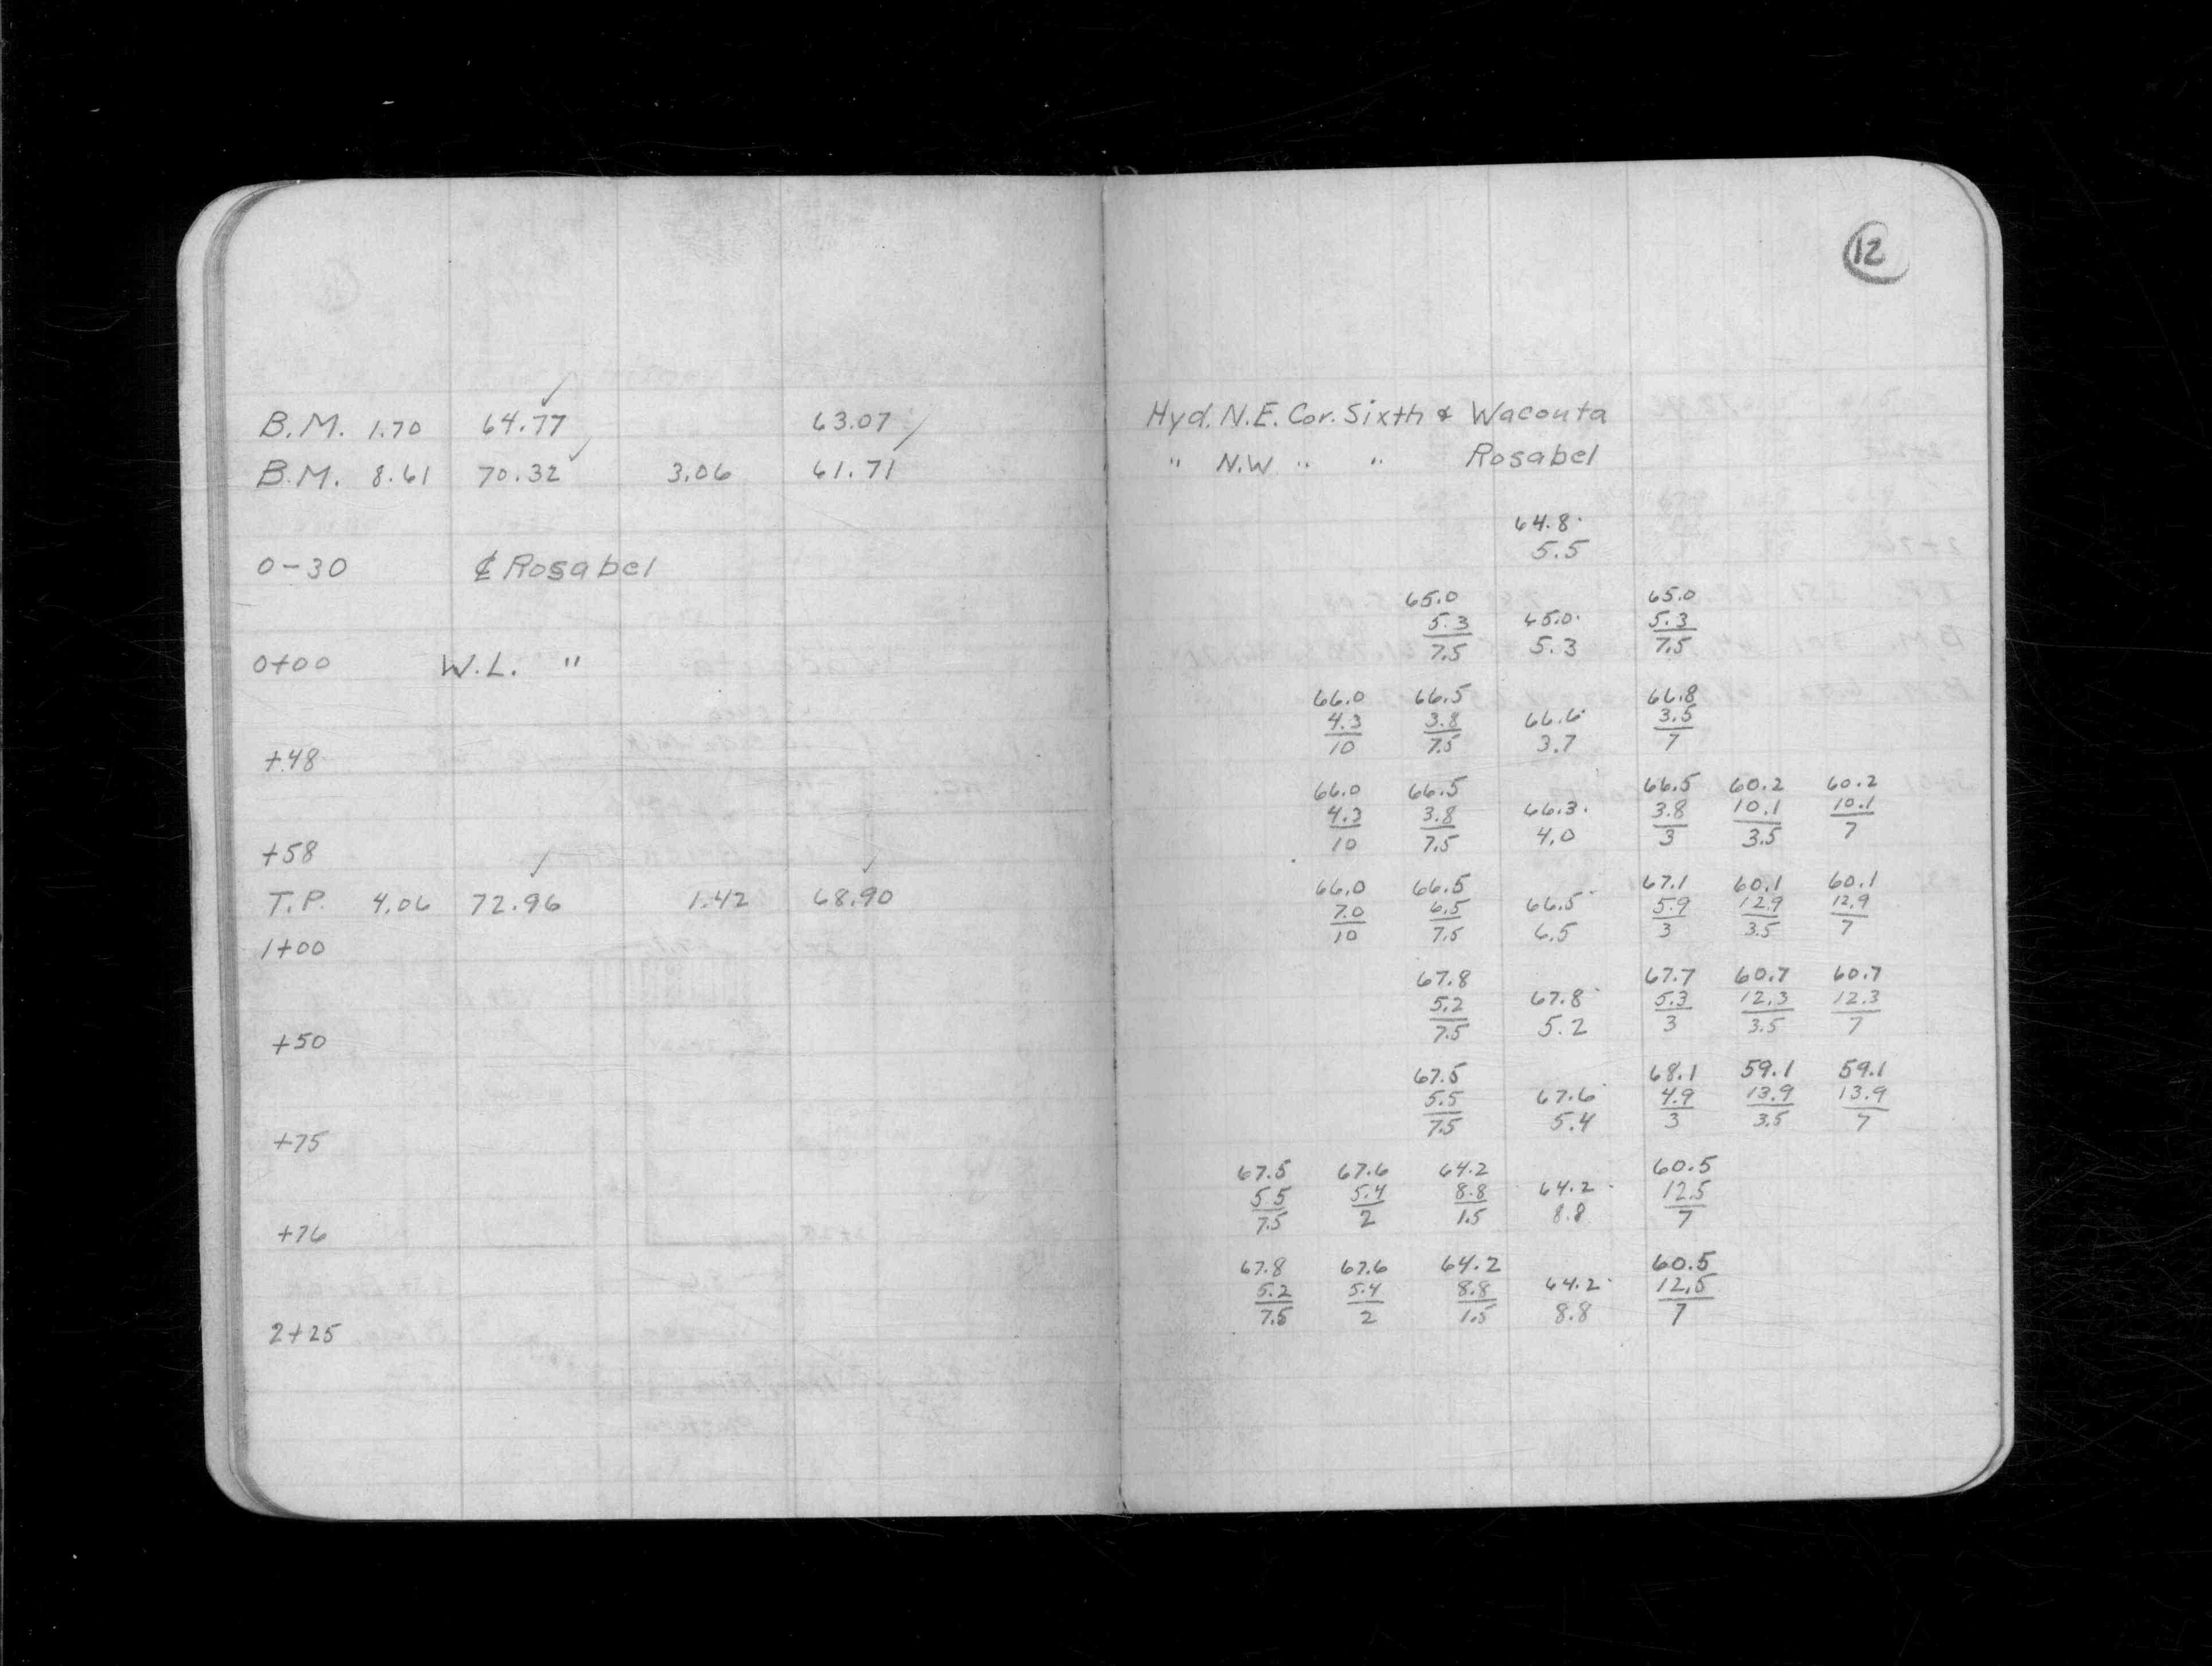 12
B.M. 1.70 64.77 ✓ 63.07 ✓ Hyd. N.E. Cor. Sixth & Wacouta
B.M. 8.61 70.32 ✓ 3.06 61.71 " N.W " " Rosabel
64.8
5.5
0-30 ₵ Rosabel
65.0 65.0
5.3 65.0 5.3
7.5 5.3 7.5
0+00 W.L. "
66.0 66.5 66.8
4.3 3.8 66.6 3.5
10 7.5 3.7 7
+48
66.0 66.5 66.5 60.2 60.2
4.3 3.8 66.3 3.8 10.1 10.1
10 7.5 4.0 3 3.5 7
+58
T.P. 4.06 72.96 ✓ 1.42 68.90 ✓
66.0 66.5 67.1 60.1 60.1
7.0 6.5 66.5 5.9 12.9 12.9
10 7.5 6.5 3 3.5 7
1+00
67.8 67.7 60.7 60.7
5.2 67.8 5.3 12.3 12.3
7.5 5.2 3 3.5 7
+50
67.5 68.1 59.1 59.1
5.5 67.6 4.9 13.9 13.9
7.5 5.4 3 3.5 7
+75
67.5 67.6 64.2 60.5
5.5 5.4 8.8 64.2 12.5
7.5 2 1.5 8.8 7
+76
67.8 67.6 64.2 60.5
5.2 5.4 8.8 64.2 12.5
7.5 2 1.5 8.8 7
2+25